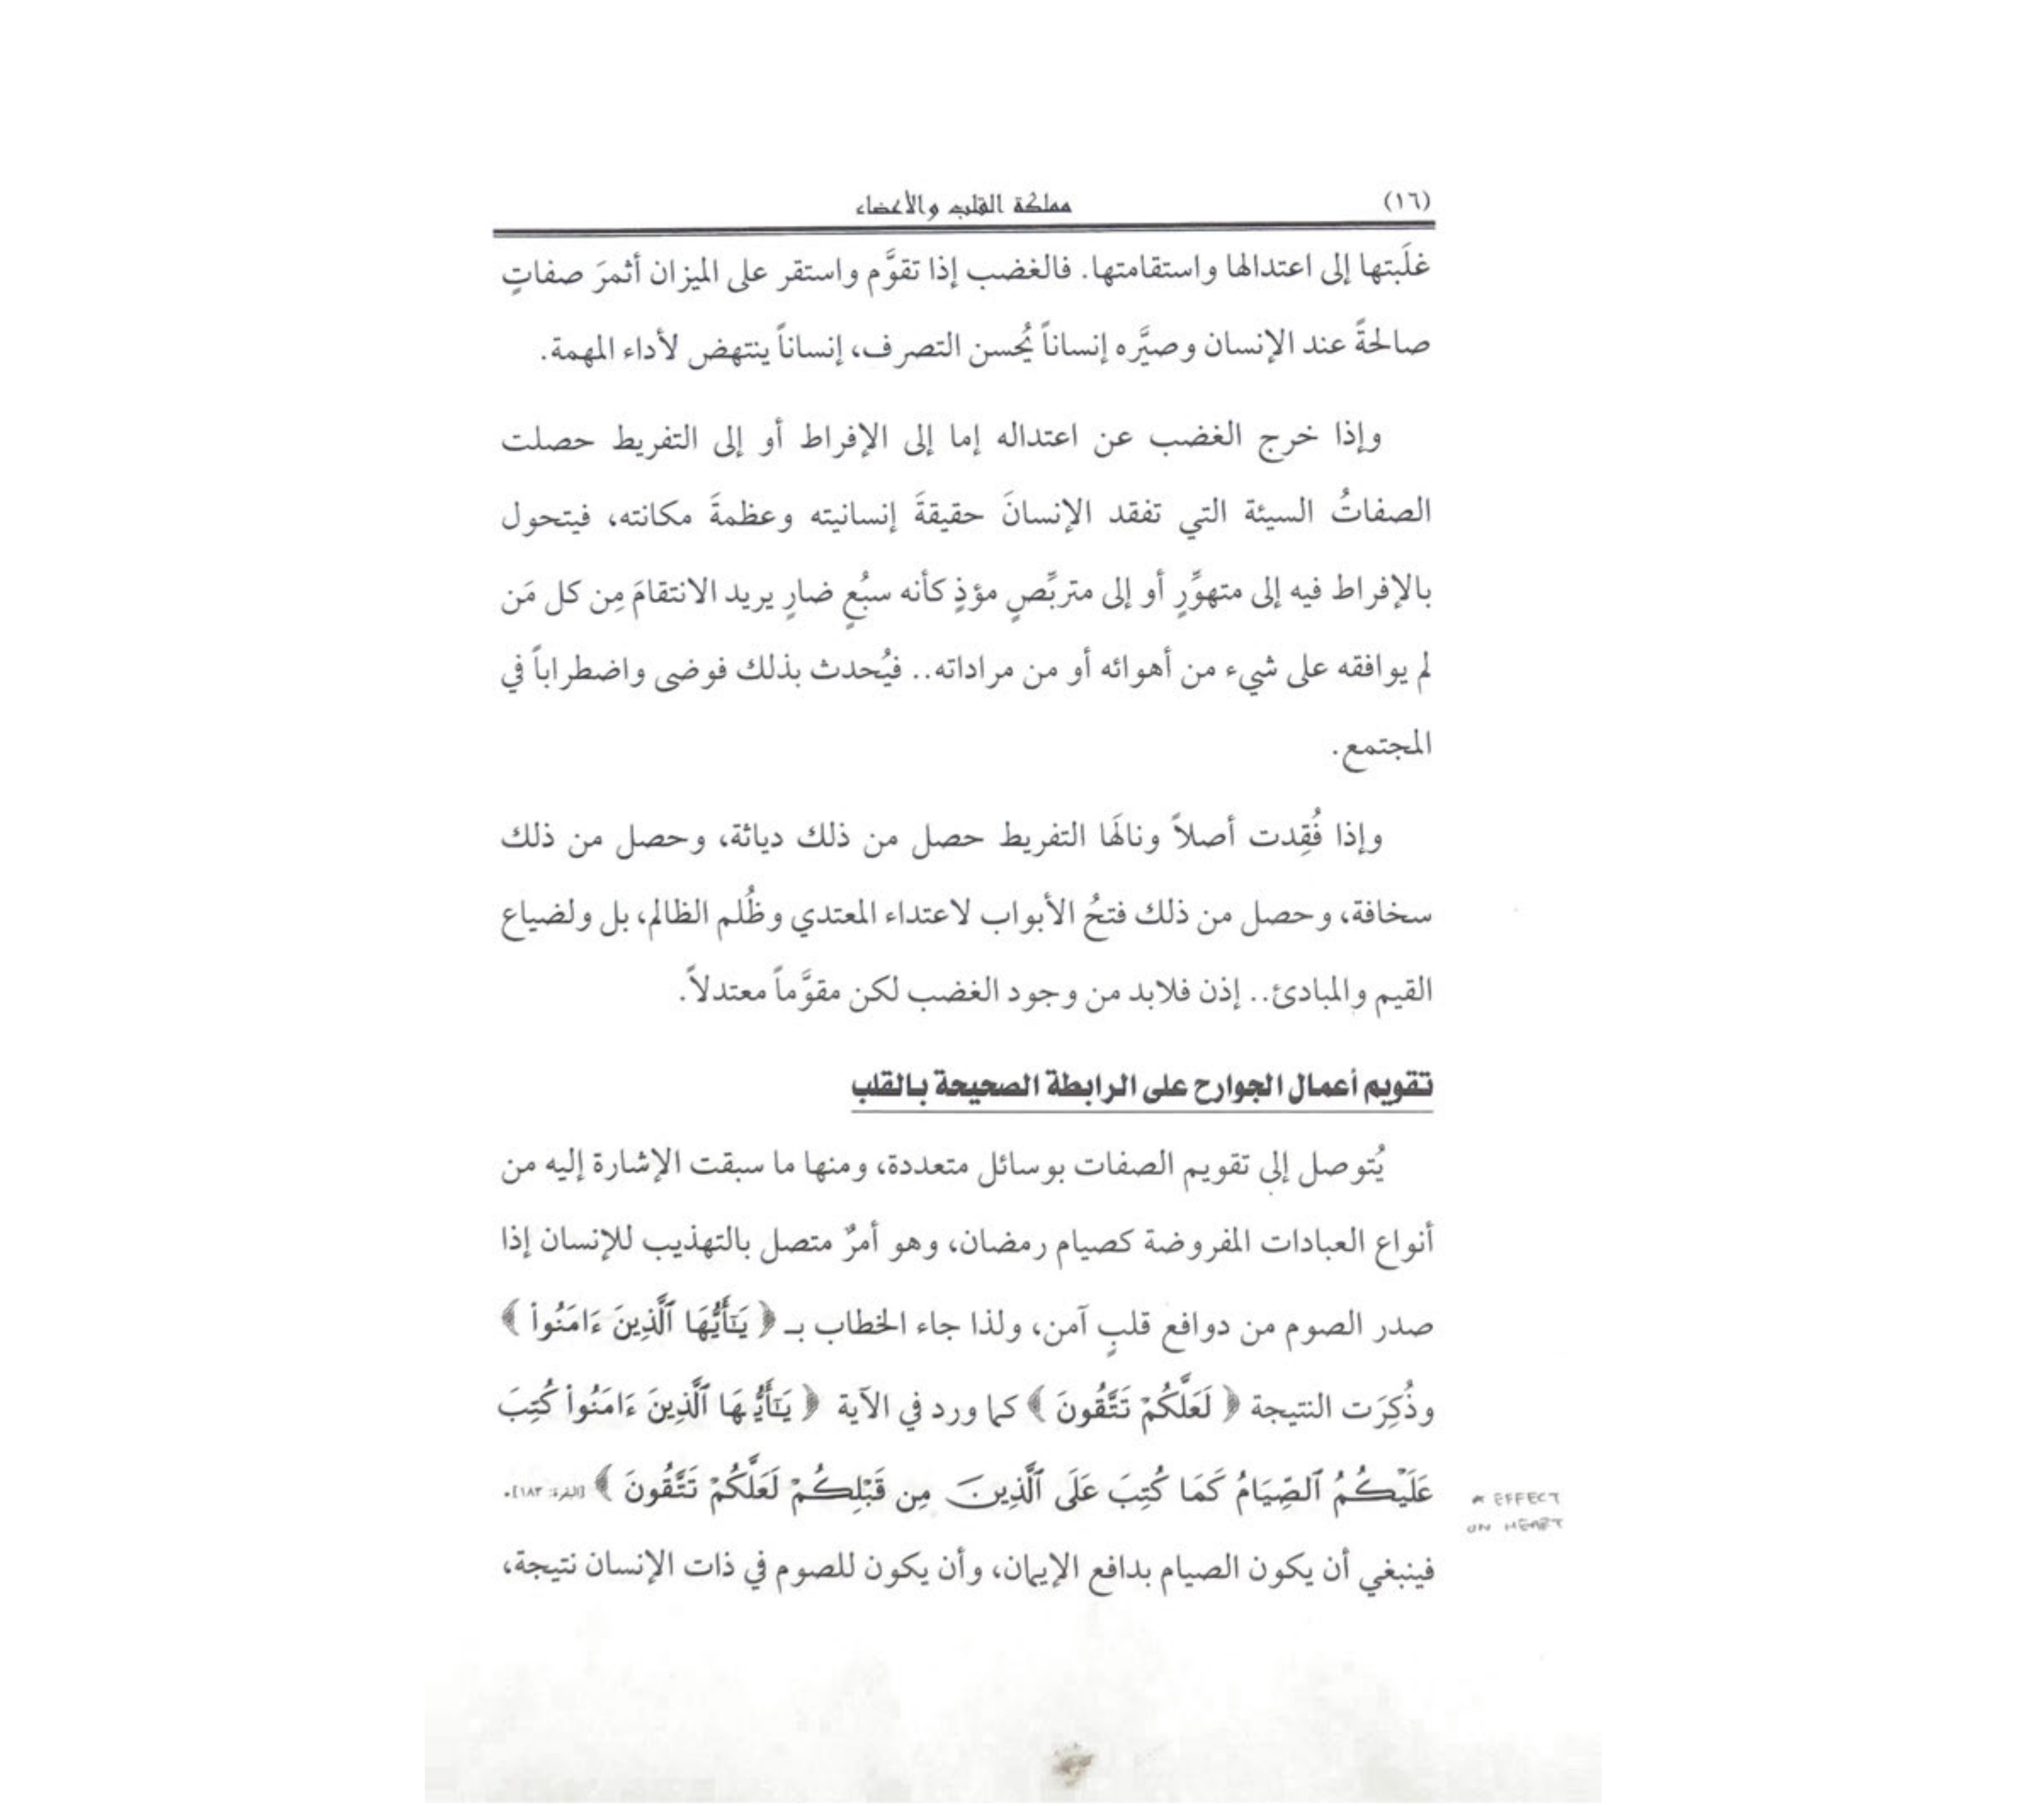 (١٦)
مملكة القلب والأعضاء
غلَبتها إلى اعتدالها واستقامتها. فالغضب إذا تقوَّم واستقر على الميزان أثمرَ صفاتٍ
صالحةً عند الإنسان وصيَّره إنساناً يُحسن التصرف، إنساناً ينتهض لأداء المهمة.
وإذا خرج الغضب عن اعتداله إما إلى الإفراط أو إلى التفريط حصلت
الصفاتُ السيئة التي تفقد الإنسانَ حقيقةَ إنسانيته وعظمةَ مكانته، فيتحول
بالإفراط فيه إلى متهوِّرٍ أو إلى متربِّصٍ مؤذٍ كأنه سبُعٍ ضارٍ يريد الانتقامَ مِن كل مَن
لم يوافقه على شيء من أهوائه أو من مراداته.. فيُحدث بذلك فوضى واضطراباً في
المجتمع.
وإذا فُقِدت أصلاً ونالهَا التفريط حصل من ذلك دياثة، وحصل من ذلك
سخافة، وحصل من ذلك فتحُ الأبواب لاعتداء المعتدي وظُلم الظالم، بل ولضياع
القيم والمبادئ.. إذن فلابد من وجود الغضب لكن مقوَّماً معتدلاً.
تقويم أعمال الجوارح على الرابطة الصحيحة بالقلب
يُتوصل إلى تقويم الصفات بوسائل متعددة، ومنها ما سبقت الإشارة إليه من
أنواع العبادات المفروضة كصيام رمضان، وهو أمرٌ متصل بالتهذيب للإنسان إذا
صدر الصوم من دوافع قلبٍ آمن، ولذا جاء الخطاب بـ ﴿ يَٰٓأَيُّهَا ٱلَّذِينَ ءَامَنُوا۟ ﴾
وذُكِرَت النتيجة ﴿ لَعَلَّكُمْ تَتَّقُونَ ﴾ كما ورد في الآية ﴿ يَٰٓأَيُّهَا ٱلَّذِينَ ءَامَنُوا۟ كُتِبَ
عَلَيْكُمُ ٱلصِّيَامُ كَمَا كُتِبَ عَلَى ٱلَّذِينَ مِن قَبْلِكُمْ لَعَلَّكُمْ تَتَّقُونَ ﴾ [البقرة: ١٨٣].
* EFFECT
ON HEART
فينبغي أن يكون الصيام بدافع الإيمان، وأن يكون للصوم في ذات الإنسان نتيجة،